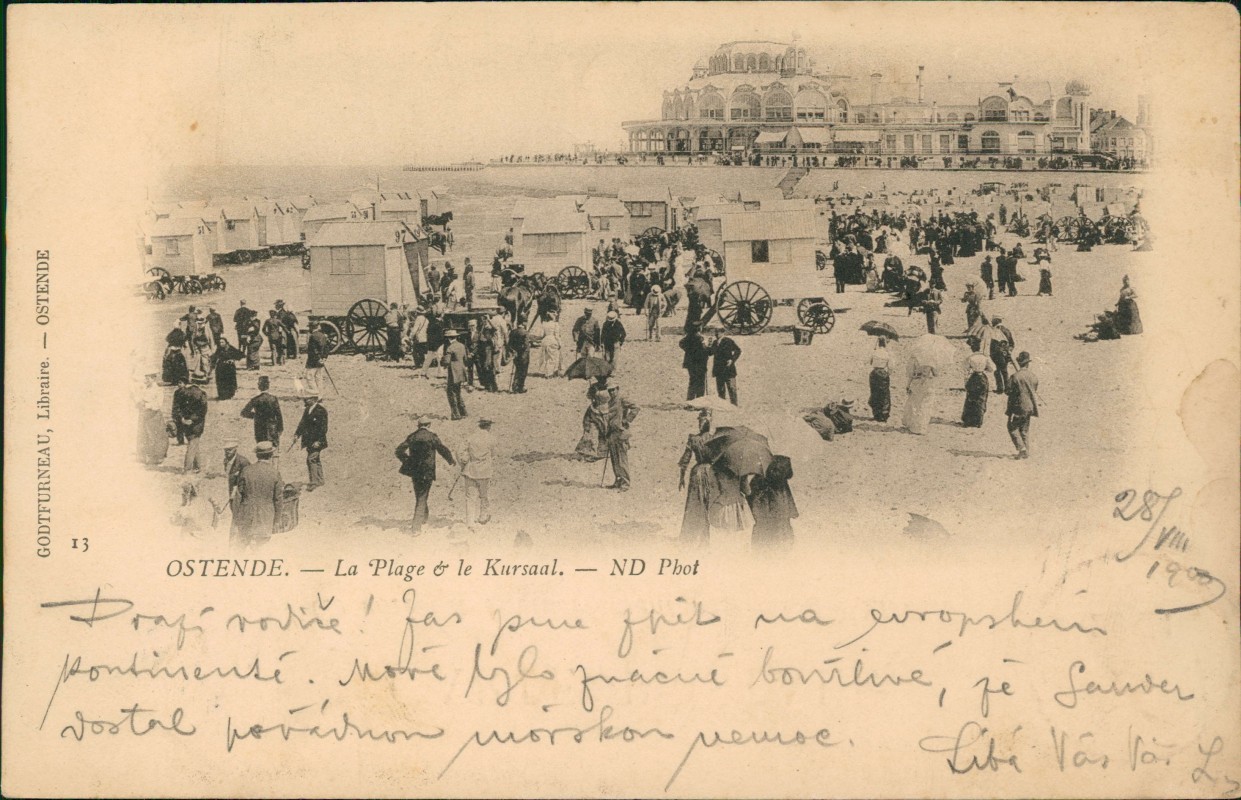 GODTFURNEAU, Libraire. — OSTENDE
13
OSTENDE. — La Plage & le Kursaal. — ND Phot
28/VIII
1900
Drazí rodiče! Zas jsme zpět na evropském
kontinentě. Moře bylo značně bouřlivé, že
dostal pořádnou mořskou nemoc.
Líbá Vás Váš L.